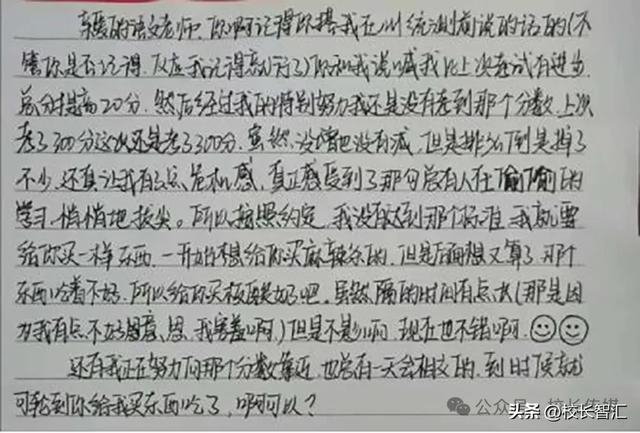 亲爱的语文老师，你啊记得你搭我在州统测前说的话的(不
管你是否记得，反应我记得就对了)你和我说喊我比上次考试有进步
总分提高20分，然后经过我的特别努力我还是没有考到那个分数，上次
考了300分这次还是考了300分，虽然没增也没有减，但是排名倒是掉了
不少，还真让我有点危机感，真正感受到了那句总有人在偷偷的
学习，悄悄地拔尖。所以按照约定，我没有达到那个标准，我就要
给你买一样东西，一开始不想给你买麻辣的，但是后面想又算了，那个
东西吃着不好，所以给你买板酸奶吧。虽然隔的时间有点长(那是因
为我有点不好意思，恩，我害羞啊)但是不影响，现在也不错啊
还有我正在努力向那个分数靠近，也总有一天会相交的，到时候就
可轮到你给我买东西吃了，啊可以？
公众号 校长传媒
头条 @校长智汇